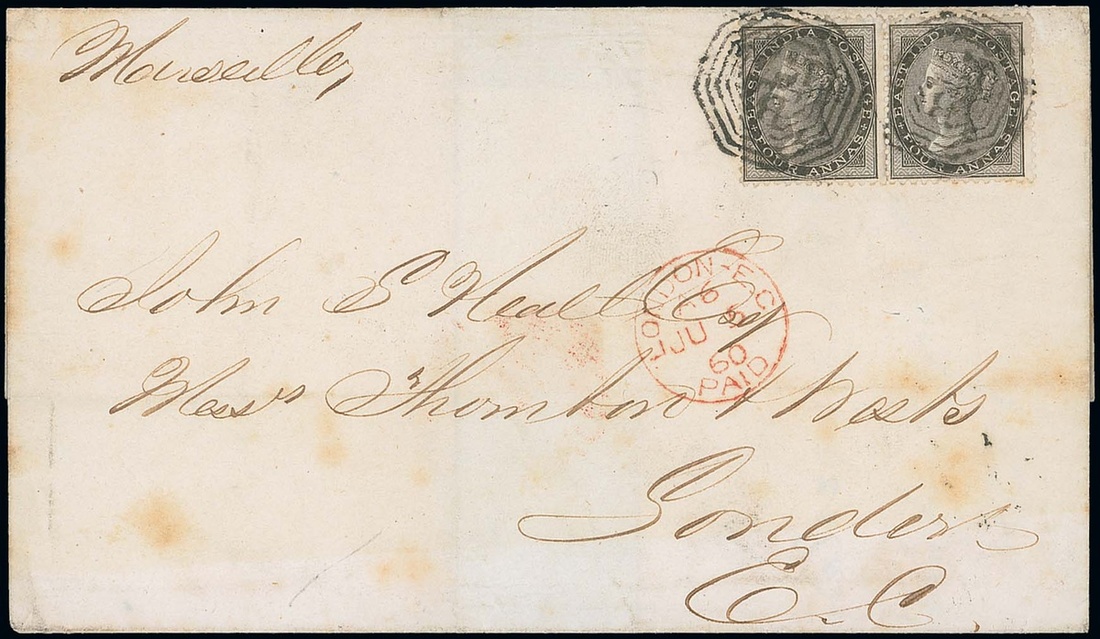 Marseilles
EAST INDIA POSTAGE
FOUR ANNAS
EAST INDIA POSTAGE
FOUR ANNAS
LONDON-E.C
6
JU
60
PAID
John S Heall Esq
Messrs Thornton & West
London
E.C.